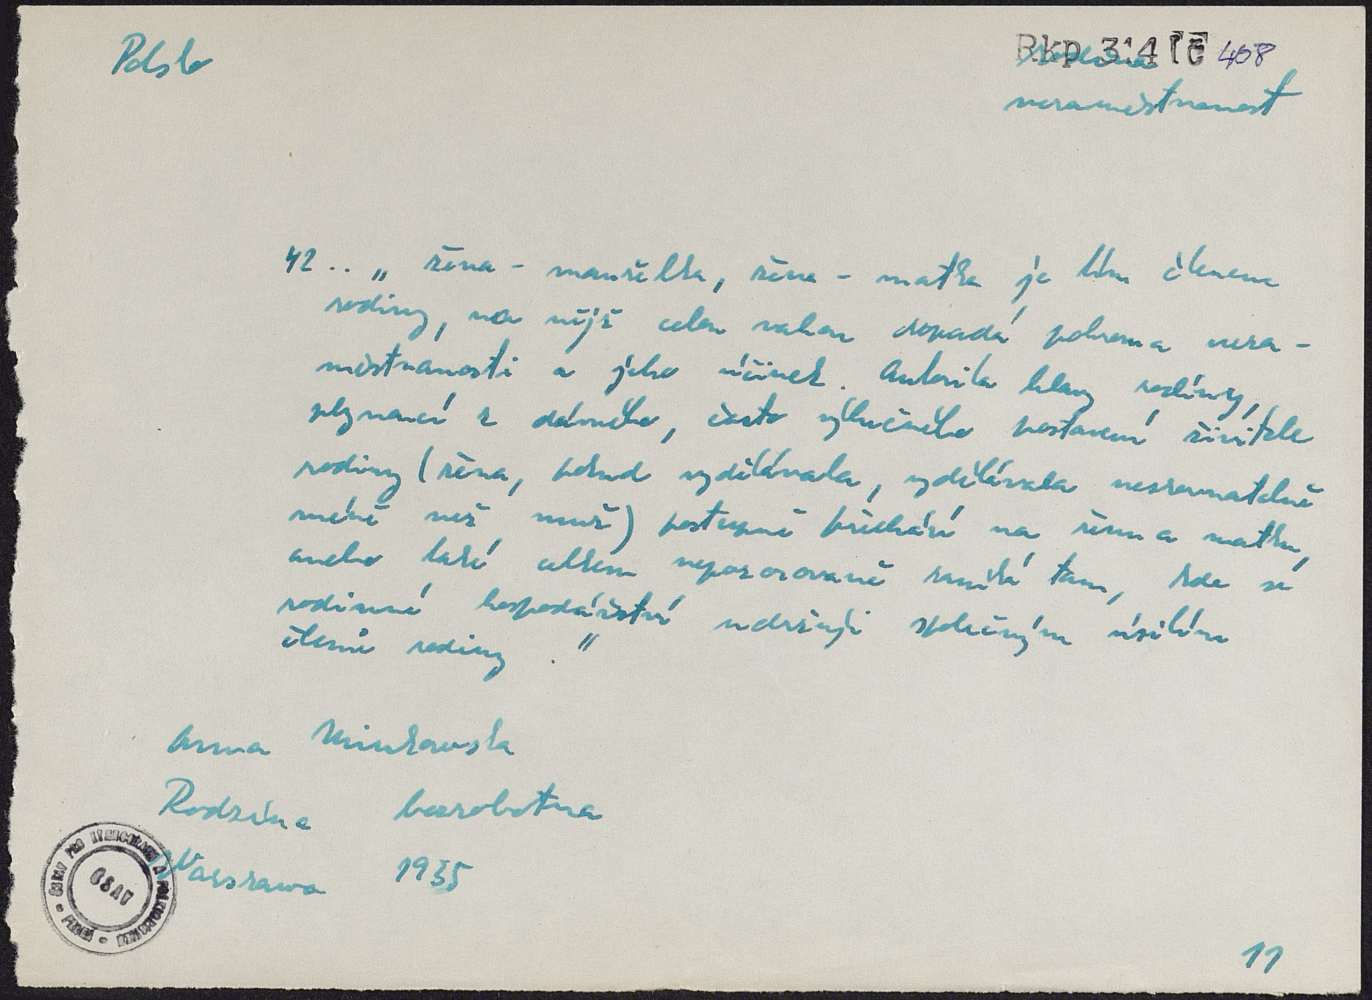 Polsko
Rkp 314 408
rodina
nezaměstnanost
42 .. „ žena - manželka, žena - matka je tím členem
rodiny, na nějž celou vahou dopadá pohroma neza-
městnanosti a jeho účinek. Autorita hlavy rodiny,
plynoucí z dávného, často výlučného postavení živitele
rodiny (žena, pokud vydělávala, vydělávala nesrovnatelně
méně než muž) postupně přechází na ženu a matku,
anebo také celkem nepozorovaně zaniká tam, kde se
rodinné hospodářství udržuje společným úsilím
členů rodiny . "
Anna Minkowska
Rodzina bezrobotna
Warszawa 1935
ÚSTAV PRO ETNOGRAFII A FOLKLORISTIKU
ČSAV
11